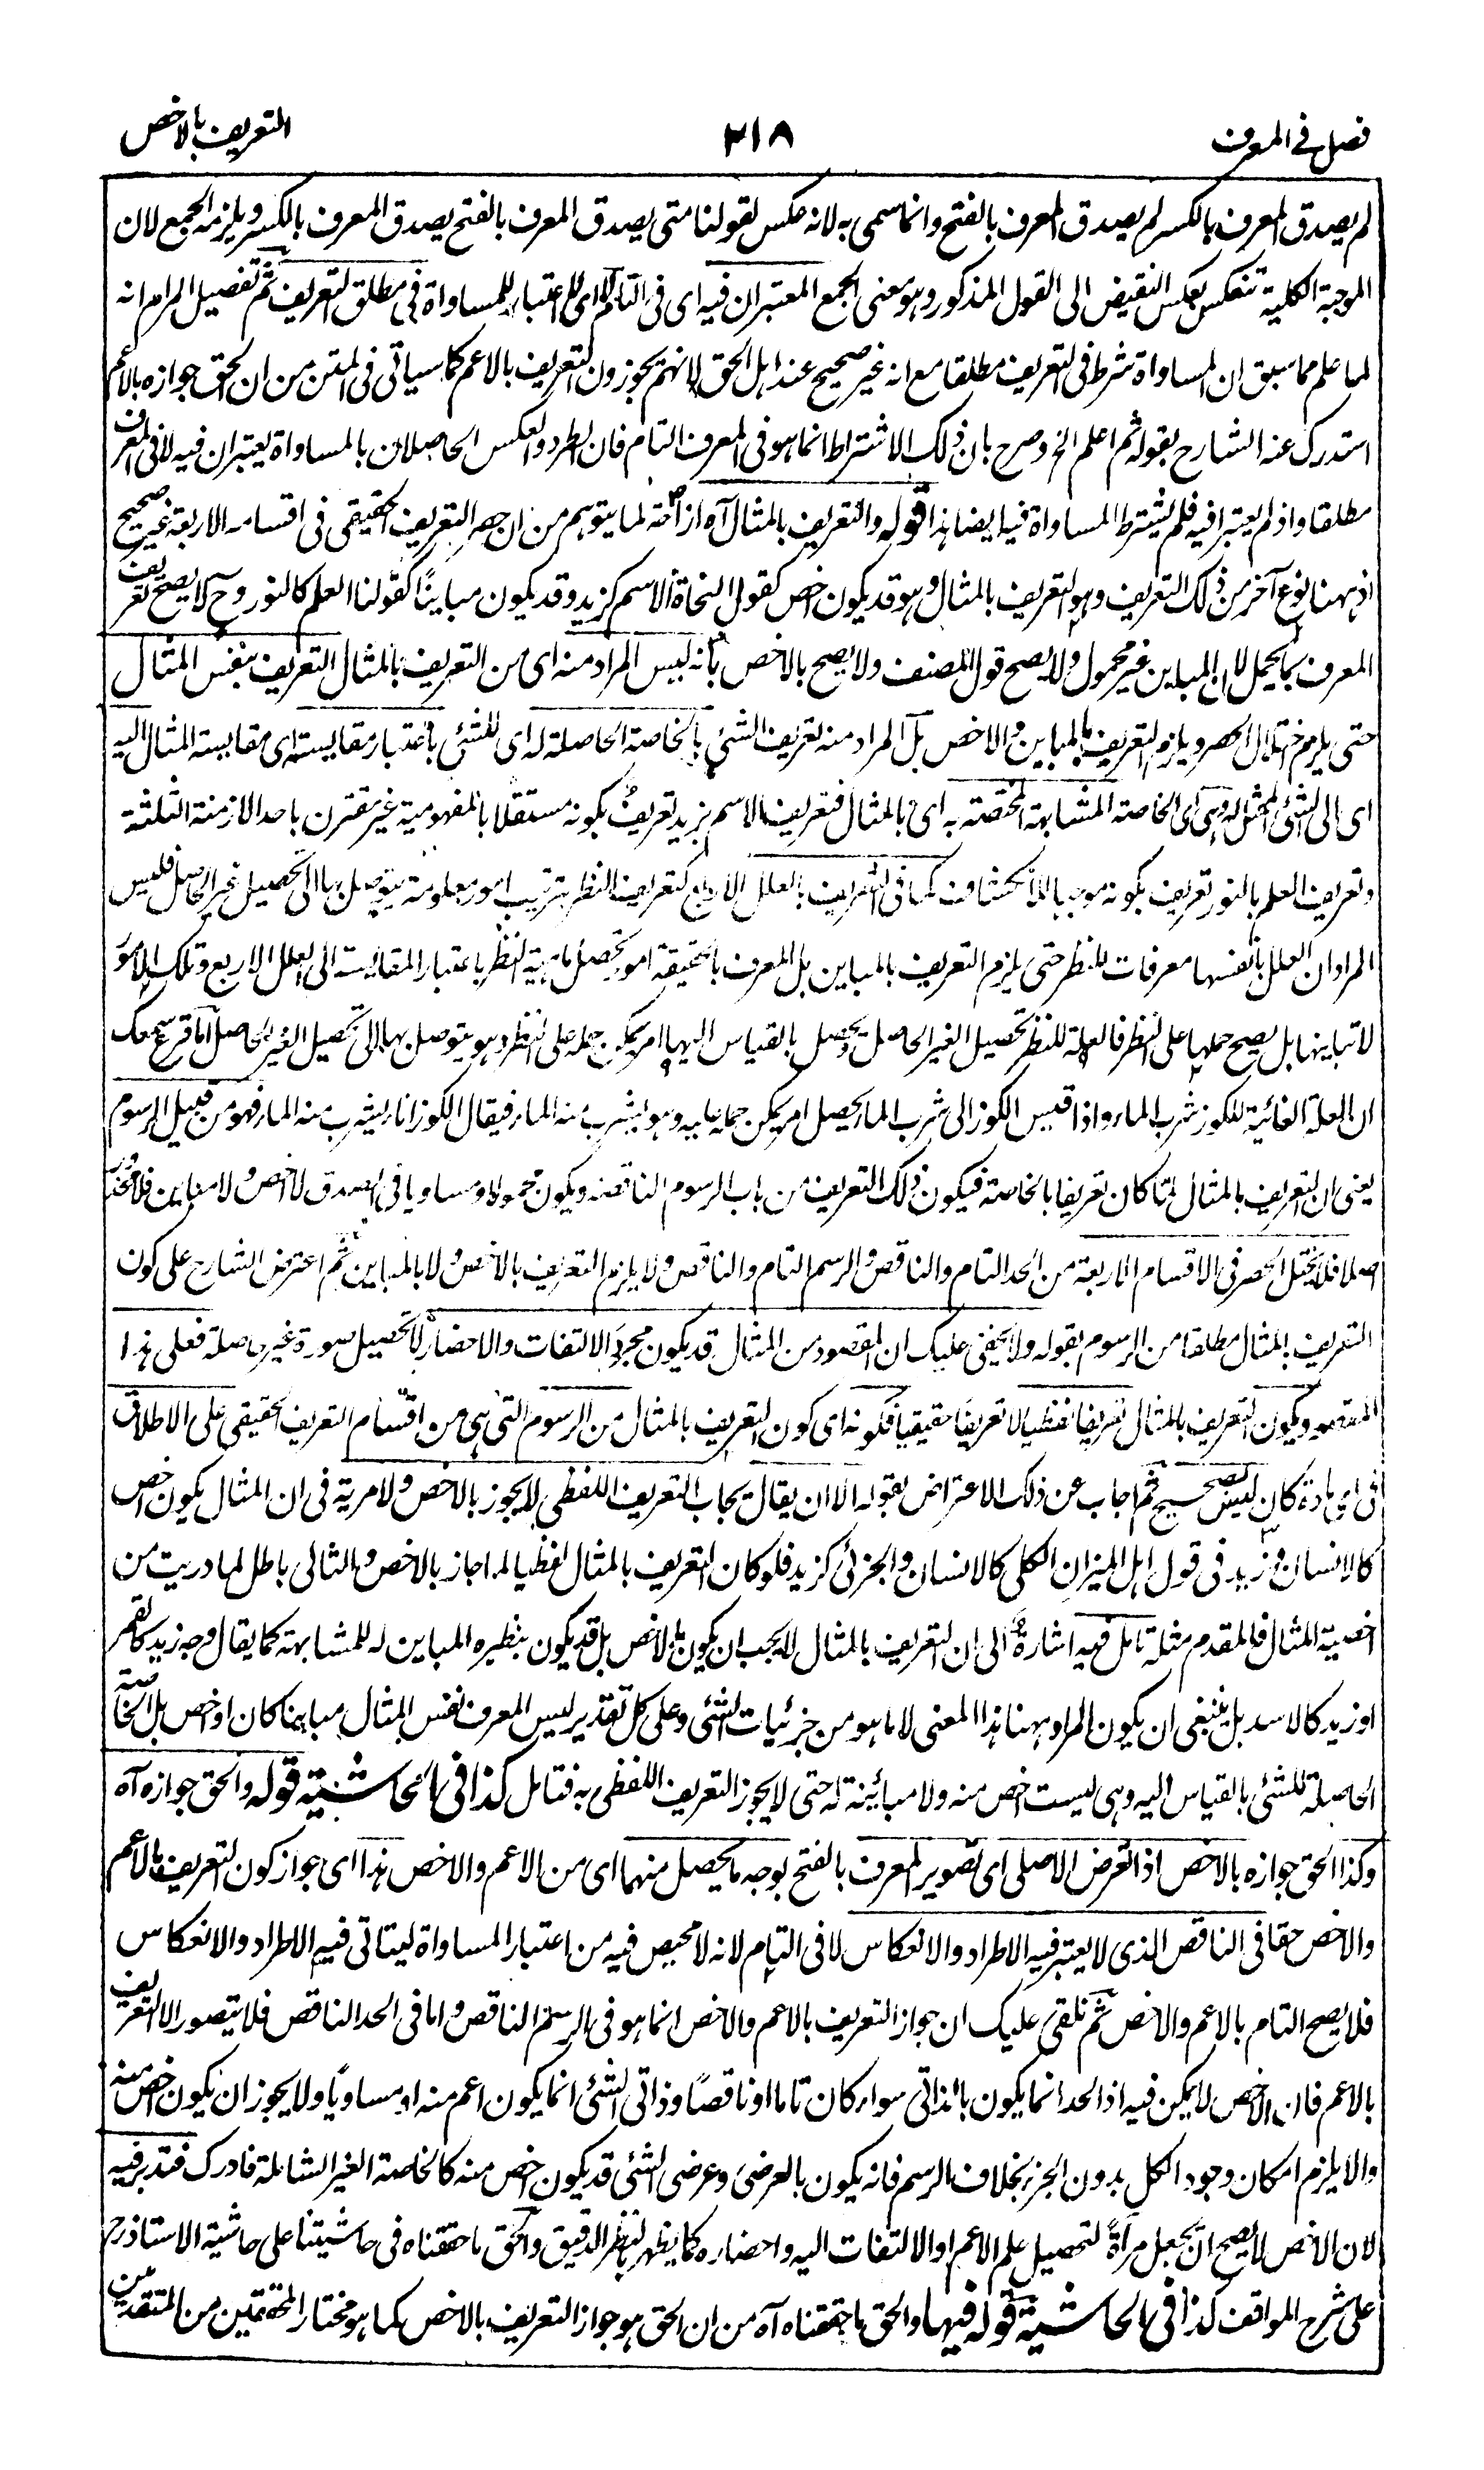 فصل فى المعرف
٢١٨
التعريف بالاخص
لم يصدق المعرف بالكسر لم يصدق المعرف بالفتح وانما سمى به لانه عكس لقولنا متى يصدق المعرف بالفتح يصدق المعرف بالكسر ويلزمه الجمع لان
الموجبة الكلية تنعكس بعكس النقيض الى القول المذكور وهو معنى الجمع المعتبران فيه اى فى التام لا اى لا اعتبار للمساواة فى مطلق التعريف ثم تفصيل المرام انه
لما علم مما سبق ان المساواة شرط فى التعريف مطلقا مع انه غير صحيح عند اهل الحق لانهم يجوزون التعريف بالاعم كما سياتى فى المتن من ان الحق جوازه بالاعم
استدرك عنه الشارح بقوله ثم اعلم الخ وصرح بان ذلك الاشتراط انما هو فى المعرف التام فان الطرد والعكس الحاصلان بالمساواة يعتبران فيه لا فى المعرف
مطلقا واذ لم يعتبرا فيه فلم يشترط المساواة فيه ايضا هذا قوله والتعريف بالمثال آه ازاحة لما يتوهم من ان حصر التعريف الحقيقى فى اقسامه الاربعة غير صحيح
اذ ههنا نوع آخر من ذلك التعريف وهو التعريف بالمثال وهو قد يكون اخص كقول النحاة الاسم كزيد وقد يكون مباينًا كقولنا العلم كالنور وح لا يصح تعريف
المعرف بما يحمل لان المباين غير محمول ولا يصح قول المصنف ولا يصح بالاخص بانه ليس المراد منه اى من التعريف بالمثال التعريف بنفس المثال
حتى يلزم اختلال الحصر ويلزم التعريف بالمباين والاخص بل المراد منه تعريف الشئ بالخاصة الحاصلة له اى للشئ باعتبار مقايسته اى مقايسة المثال اليه
اى الى الشئ الممثل له وهى اى الخاصة المشابهة المختصة به اى بالمثال فتعريف الاسم بزيد تعريفٌ بكونه مستقلا بالمفهومية غير مقترن باحد الازمنة الثلثة
وتعريف العلم بالنور تعريف بكونه موجبا للانكشاف كما فى التعريف بالعلل الاربع كتعريف النظر بترتيب امور معلومة يتوصل بها الى تحصيل غير الحاصل فليس
المراد ان العلل بانفسها معرفات للنظر حتى يلزم التعريف بالمباين بل المعرف بالحقيقة امور تحصل ماهية النظر باعتبار المقايسة الى العلل الاربع وتلك الامور
لا تباينها بل يصح حملها على النظر فالعلة للنظر تحصيل الغير الحاصل ويحصل بالقياس اليها امر يمكن حمله على النظر وهو يتوصل بها الى تحصيل الغير الحاصل اما قرع سمعك
ان العلة الغائية للكوز شرب الماء واذا قيس الكوز الى شرب الماء يحصل امر يمكن حمله عليه وهو يشرب منه الماء فيقال الكوز اناء يشرب منه الماء فهو من قبيل الرسوم
يعنى ان التعريف بالمثال لما كان تعريفا بالخاصة فيكون ذلك التعريف من باب الرسوم الناقصة ويكون محمولا ومساويا فى الصدق لا اخص ولا مباين فلا محذور
اصلا فلا يختل الحصر فى الاقسام الاربعة من الحد التام والناقص والرسم التام والناقص ولا يلزم التعريف بالاخص ولا بالمباين ثم اعترض الشارح على كون
التعريف بالمثال مطلقا من الرسوم بقوله ولا يخفى عليك ان المقصود من المثال قد يكون مجرد الالتفات والاحضار لا تحصيل صورة غير حاصلة فعلى هذا
المقصود يكون التعريف بالمثال تعريفًا لفظيا لا تعريفًا حقيقيا فكونه اى كون التعريف بالمثال من الرسوم التى هى من اقسام التعريف الحقيقى على الاطلاق
فى اى مادة كان ليس بصحيح ثم اجاب عن ذلك الاعتراض بقوله الا ان يقال يجاب التعريف اللفظى لا يجوز بالاخص ولا مرية فى ان المثال يكون اخص
كالانسان وزيد فى قول اهل الميزان الكلى كالانسان والجزئى كزيد فلو كان التعريف بالمثال لفظيا لما جاز بالاخص والتالى باطل لما دريت من
اخصية المثال فالمقدم مثله تامل فيه اشارة الى ان التعريف بالمثال لا يجب ان يكون بالاخص بل قد يكون بنظيره المباين له للمشابهة كما يقال وجه زيد كالقمر
او زيد كالاسد بل ينبغى ان يكون المراد ههنا هذا المعنى لا ما هو من جزئيات الشئ وعلى كل تقدير ليس المعرف نفس المثال مباينا كان او اخص بل الخاصة
الحاصلة للشئ بالقياس اليه وهى ليست اخص منه ولا مبائنة له حتى لا يجوز التعريف اللفظى به فتامل كذا فى الحاشية قوله والحق جوازه آه
وكذا الحق جوازه بالاخص اذ الغرض الاصلى اى تصوير المعرف بالفتح بوجه ما يحصل منهما اى من الاعم والاخص هذا اى جواز كون التعريف بالاعم
والاخص حقا فى الناقص الذى لا يعتبر فيه الاطراد والانعكاس لا فى التام لانه لا محيص فيه من اعتبار المساواة ليتاتى فيه الاطراد والانعكاس
فلا يصح التام بالاعم والاخص ثم نلقى عليك ان جواز التعريف بالاعم والاخص انما هو فى الرسم الناقص واما فى الحد الناقص فلا يتصور الا التعريف
بالاعم فان الاخص لا يمكن فيه اذ الحد انما يكون بالذاتى سواء كان تاما او ناقصًا وذاتى الشئ انما يكون اعم منه او مساويًا ولا يجوز ان يكون اخص منه
والا يلزم امكان وجود الكل بدون الجزء بخلاف الرسم فانه يكون بالعرضى وعرضى الشئ قد يكون اخص منه كالخاصة الغير الشاملة فادرك فتدبر فيه
لان الاخص لا يصح ان يجعل مرآةً لتحصيل علم الاعم او الالتفات اليه واحضاره كما يظهر بالنظر الدقيق والحق ما حققناه فى حاشيتنا على حاشية الاستاذ رح
على شرح المواقف كذا فى الحاشية قوله فيها والحق ما حققناه آه من ان الحق هو جواز التعريف بالاخص كما هو مختار المحققين من المتقدمين